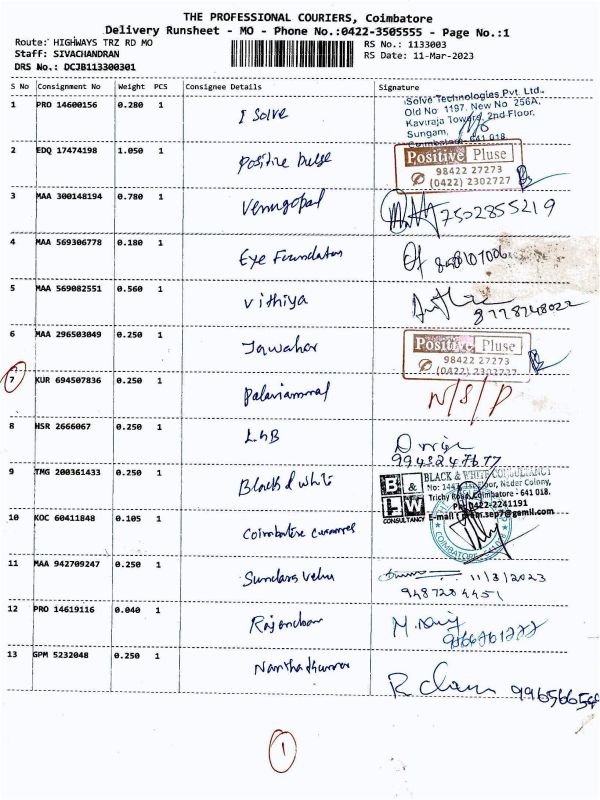 THE PROFESSIONAL COURIERS, Coimbatore
Delivery Runsheet - MO - Phone No.:0422-3505555 - Page No.:1
Route: HIGHWAYS TRZ RD MO
RS No.: 1133003
Staff: SIVACHANDRAN
RS Date: 11-Mar-2023
DRS No.: DCJB113300301
S No Consignment No Weight PCS Consignee Details Signature
1 PRO 14600156 0.280 1 I Solve
Solve Technologies Pvt. Ltd.,
Old No 1197, New No 256A,
Kaviraja Towers, 2nd Floor,
Sungam,
Coimbatore 641 018.
2 EDQ 17474198 1.050 1 Positive pulse
Positive Pluse
98422 27273
(0422) 2302727
3 MAA 300148194 0.780 1 Venugopal 7502855219
4 MAA 569306778 0.180 1 Eye Foundation
5 MAA 569082551 0.560 1 Vithiya
8778748022
6 MAA 296503049 0.250 1 Jawahar
Positive Pluse
98422 27273
(0422) 2302727
7 KUR 694507836 0.250 1 Palaniammal N/S/P
8 HSR 2666067 0.250 1 L&B
9 TMG 200361433 0.250 1 Black & white
B & W
CONSULTANCY
BLACK & WHITE CONSULTANCY
Floor, Nadar Colony,
Trichy Road, Coimbatore - 641 018.
Ph: 0422-2241191
10 KOC 60411848 0.105 1 Coimbatore
COIMBATORE
11 MAA 942709247 0.250 1 Sundara velu 11/3/2023
9487204451
12 PRO 14619116 0.040 1 Rajendran
13 GPM 5232048 0.250 1 Nanthakumar
1